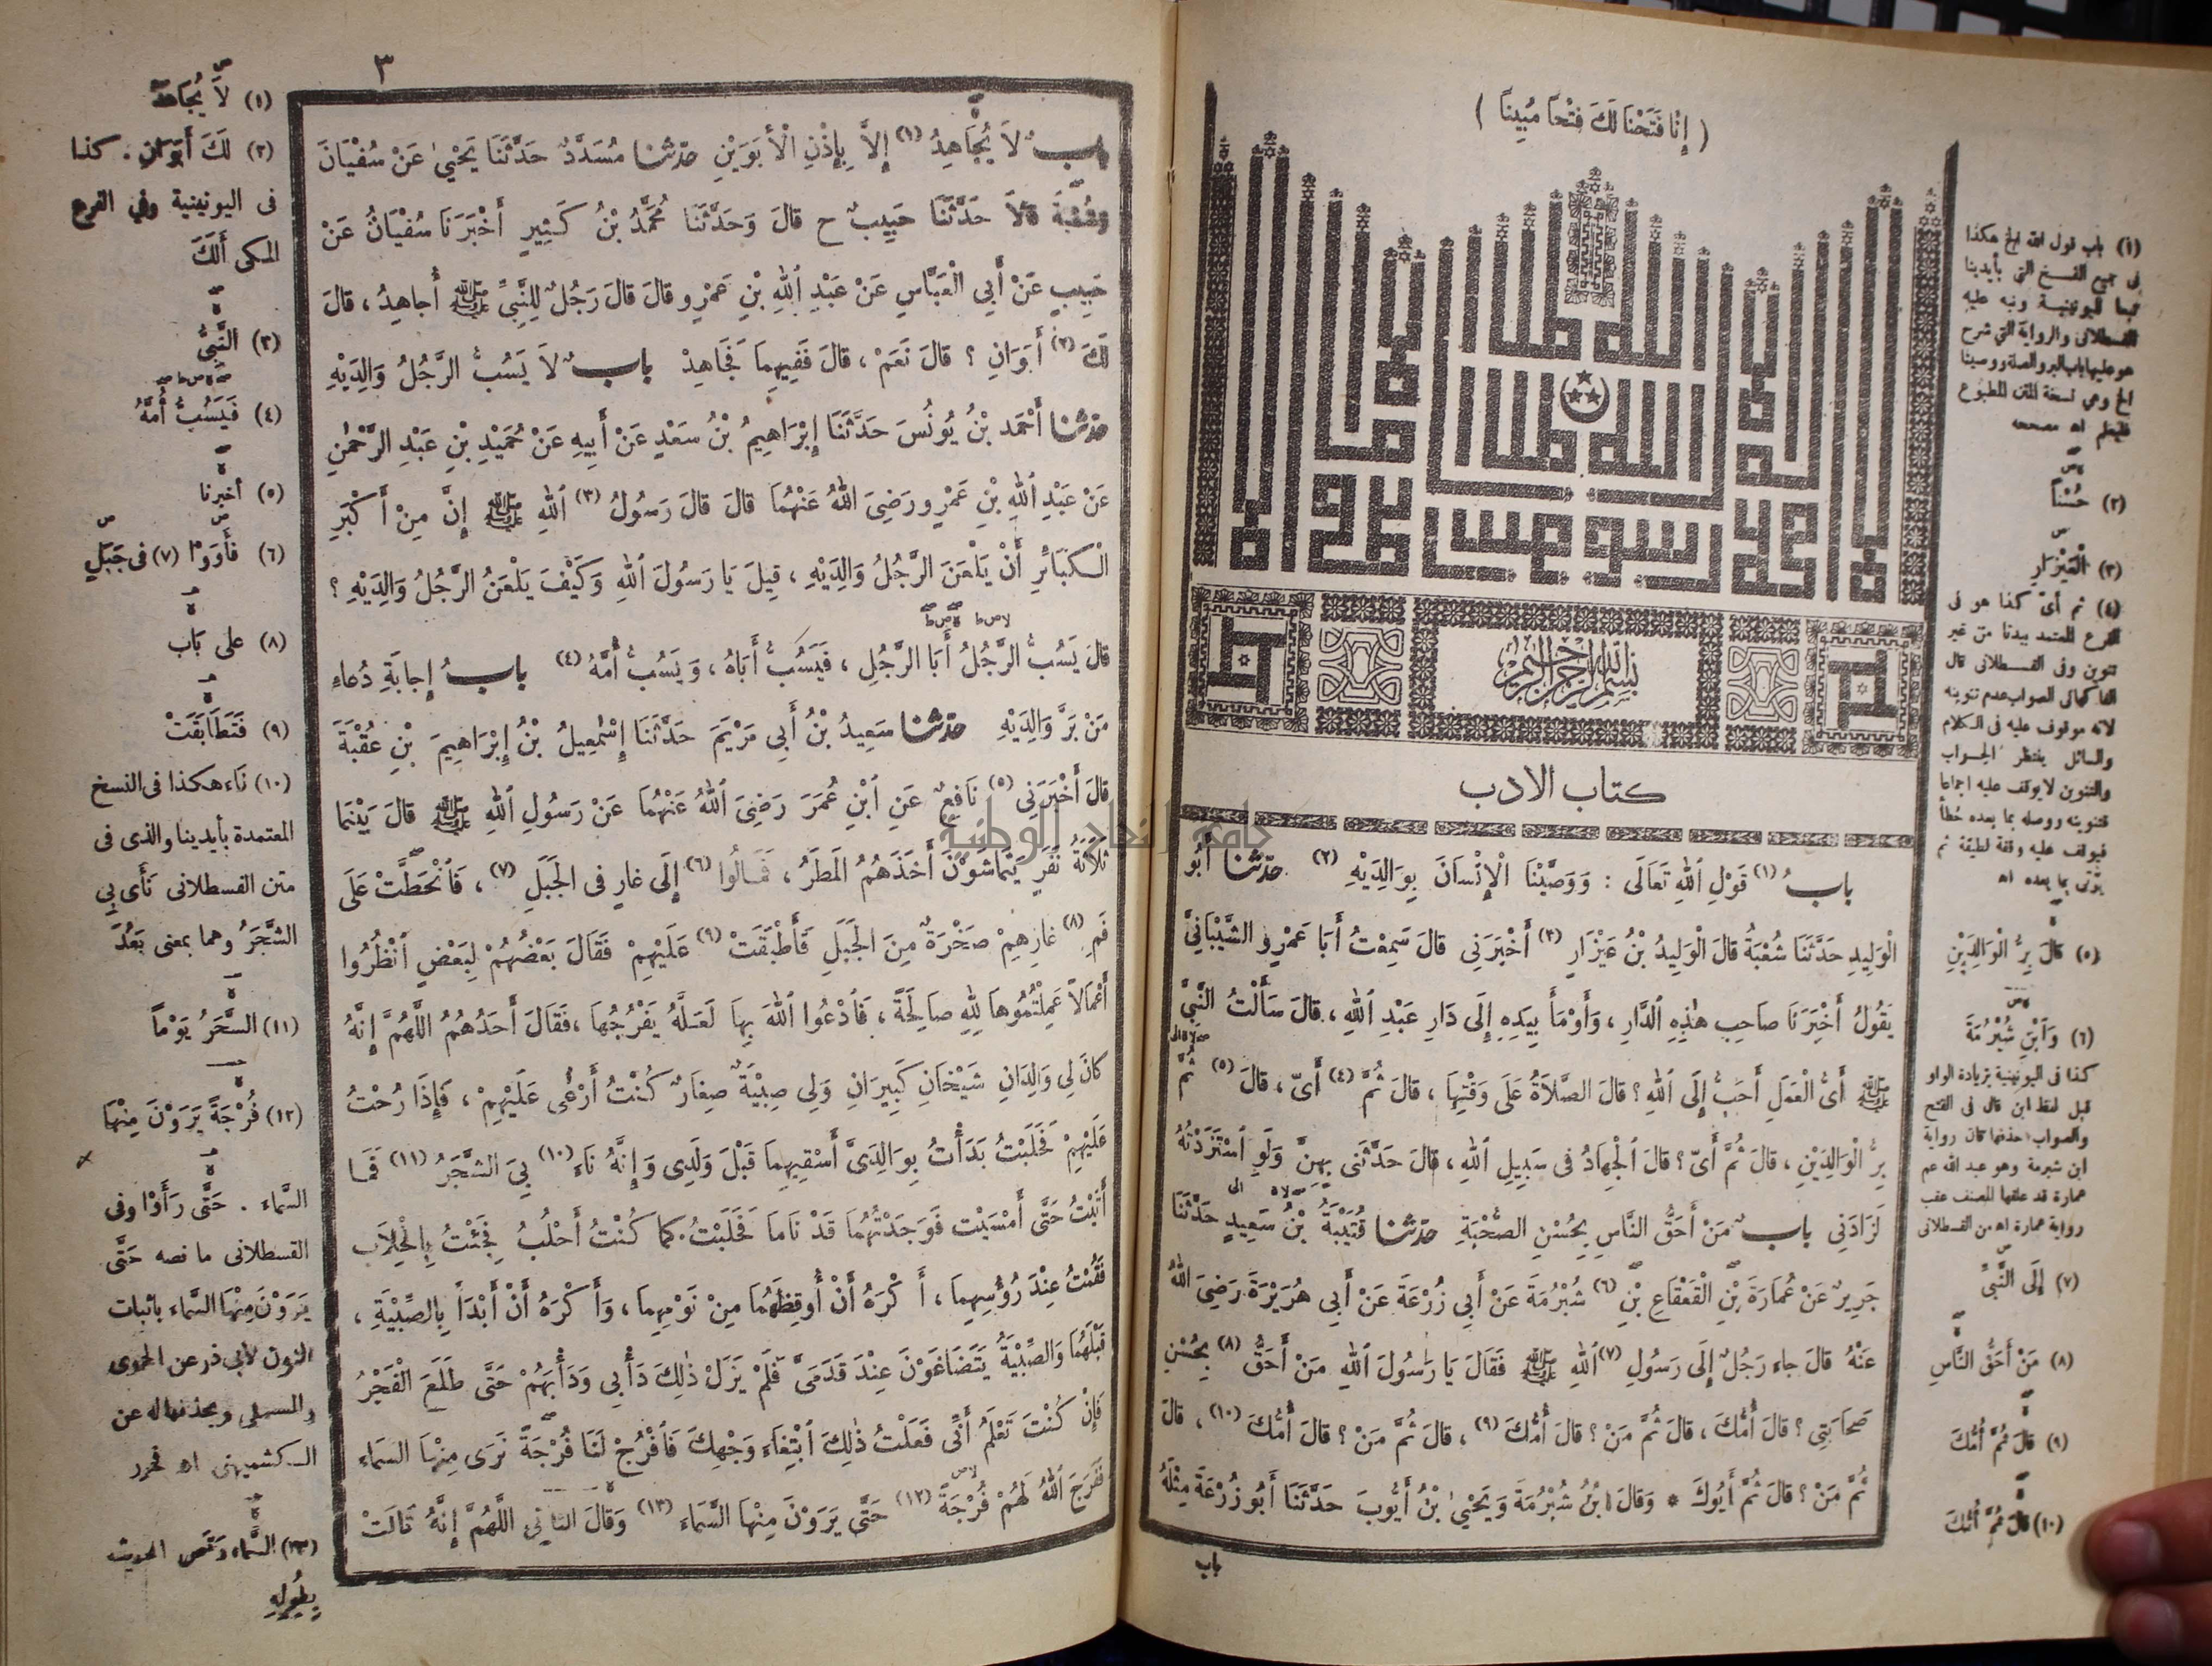 ( إِنَّا فَتَحْنَا لَكَ فَتْحًا مُبِينًا )
لا إله إلا الله محمد رسول الله
بسم الله الرحمن الرحيم
كتاب الأدب
بابُ (١) قَوْلِ اللهِ تَعَالَى : وَوَصَّيْنَا الْإِنْسَانَ بِوَالِدَيْهِ (٢) حَدَّثَنَا أَبُو
الْوَلِيدِ حَدَّثَنَا شُعْبَةُ قَالَ الْوَلِيدُ بْنُ عَيْزَارٍ (٣) أَخْبَرَنِي قَالَ سَمِعْتُ أَبَا عَمْرٍو الشَّيْبَانِيَّ
يَقُولُ أَخْبَرَنَا صَاحِبُ هٰذِهِ الدَّارِ ، وَأَوْمَأَ بِيَدِهِ إِلَى دَارِ عَبْدِ اللهِ ، قَالَ سَأَلْتُ النَّبِيَّ
ﷺ أَىُّ الْعَمَلِ أَحَبُّ إِلَى اللهِ ؟ قَالَ الصَّلَاةُ عَلَى وَقْتِهَا ، قَالَ ثُمَّ (٤) أَىّ ، قَالَ (٥) ثُمَّ
بِرُّ الْوَالِدَيْنِ ، قَالَ ثُمَّ أَىّ ؟ قَالَ الْجِهَادُ فِى سَبِيلِ اللهِ ، قَالَ حَدَّثَنِى بِهِنَّ وَلَوِ اسْتَزَدْتُهُ
لَزَادَنِى بابٌ مَنْ أَحَقُّ النَّاسِ بِحُسْنِ الصُّحْبَةِ حَدَّثَنَا قُتَيْبَةُ بْنُ سَعِيدٍ حَدَّثَنَا
جَرِيرٌ عَنْ عُمَارَةَ بْنِ الْقَعْقَاعِ بْنِ (٦) شُبْرُمَةَ عَنْ أَبِى زُرْعَةَ عَنْ أَبِى هُرَيْرَةَ رَضِىَ اللهُ
عَنْهُ قَالَ جَاءَ رَجُلٌ إِلَى رَسُولِ (٧) اللهِ ﷺ فَقَالَ يَا رَسُولَ اللهِ مَنْ أَحَقُّ (٨) بِحُسْنِ
صَحَابَتِى ؟ قَالَ أُمُّكَ ، قَالَ ثُمَّ مَنْ ؟ قَالَ أُمُّكَ (٩) ، قَالَ ثُمَّ مَنْ ؟ قَالَ أُمُّكَ (١٠) ، قَالَ
ثُمَّ مَنْ ؟ قَالَ ثُمَّ أَبُوكَ * وَقَالَ ابْنُ شُبْرُمَةَ وَيَحْيىٰ بْنُ أَيُّوبَ حَدَّثَنَا أَبُو زُرْعَةَ مِثْلَهُ
باب
(١) باب قول الله الخ هكذا
فى جميع النسخ التى بأيدينا
تبعا لليونينية ونبه عليه
القسطلانى والرواية التى شرح
هو عليها باب البر والصلة ووصينا
الخ وهى نسخة المتن المطبوع
فليعلم اه مصححه
(٢) حُسْنًا
(٣) الْعَيْزَارِ
(٤) ثم أىّ كذا هو فى
الفرع المعتمد بيدنا من غير
تنوين وفى القسطلانى قال
الفاكهانى الصواب عدم تنوينه
لانه موقوف عليه فى الكلام
والسائل ينتظر الجواب
والتنوين لا يوقف عليه اجماعا
فتنوينه ووصله بما بعده خطأ
فيوقف عليه وقفة لطيفة ثم
يؤتى بما بعده اه
(٥) قَالَ بِرُّ الْوَالِدَيْنِ
(٦) وَابْنِ شُبْرُمَةَ
كذا فى اليونينية بزيادة الواو
قبل لفظ ابن قال فى الفتح
والصواب حذفها كان رواية
ابن شبرمة وهو عبد الله عم
عمارة قد علقها المصنف عقب
رواية عمارة اه من القسطلانى
(٧) إِلَى النَّبِىِّ
(٨) مَنْ أَحَقُّ النَّاسِ
(٩) قَالَ ثُمَّ أُمُّكَ
(١٠) قَالَ ثُمَّ أُمُّكَ
٣
بابٌ لَا يُجَاهِدُ (١) إِلَّا بِإِذْنِ الْأَبَوَيْنِ حَدَّثَنَا مُسَدَّدٌ حَدَّثَنَا يَحْيىٰ عَنْ سُفْيَانَ
وَشُعْبَةَ قَالَا حَدَّثَنَا حَبِيبٌ ح قَالَ وَحَدَّثَنَا مُحَمَّدُ بْنُ كَثِيرٍ أَخْبَرَنَا سُفْيَانُ عَنْ
حَبِيبٍ عَنْ أَبِى الْعَبَّاسِ عَنْ عَبْدِ اللهِ بْنِ عَمْرٍو قَالَ قَالَ رَجُلٌ لِلنَّبِىِّ ﷺ أُجَاهِدُ ، قَالَ
لَكَ (٢) أَبَوَانِ ؟ قَالَ نَعَمْ ، قَالَ فَفِيهِمَا فَجَاهِدْ بابٌ لَا يَسُبُّ الرَّجُلُ وَالِدَيْهِ
حَدَّثَنَا أَحْمَدُ بْنُ يُونُسَ حَدَّثَنَا إِبْرَاهِيمُ بْنُ سَعْدٍ عَنْ أَبِيهِ عَنْ حُمَيْدِ بْنِ عَبْدِ الرَّحْمٰنِ
عَنْ عَبْدِ اللهِ بْنِ عَمْرٍو رَضِىَ اللهُ عَنْهُمَا قَالَ قَالَ رَسُولُ (٣) اللهِ ﷺ إِنَّ مِنْ أَكْبَرِ
الْكَبَائِرِ أَنْ يَلْعَنَ الرَّجُلُ وَالِدَيْهِ ، قِيلَ يَا رَسُولَ اللهِ وَكَيْفَ يَلْعَنُ الرَّجُلُ وَالِدَيْهِ ؟
قَالَ يَسُبُّ الرَّجُلُ أَبَا الرَّجُلِ ، فَيَسُبُّ أَبَاهُ ، وَيَسُبُّ أُمَّهُ (٤) بابُ إِجَابَةِ دُعَاءِ
مَنْ بَرَّ وَالِدَيْهِ حَدَّثَنَا سَعِيدُ بْنُ أَبِى مَرْيَمَ حَدَّثَنَا إِسْمٰعِيلُ بْنُ إِبْرَاهِيمَ بْنِ عُقْبَةَ
قَالَ أَخْبَرَنِى (٥) نَافِعٌ عَنِ ابْنِ عُمَرَ رَضِىَ اللهُ عَنْهُمَا عَنْ رَسُولِ اللهِ ﷺ قَالَ بَيْنَمَا
ثَلَاثَةُ نَفَرٍ يَتَمَاشَوْنَ أَخَذَهُمُ الْمَطَرُ ، فَمَالُوا (٦) إِلَى غَارٍ فِى الْجَبَلِ (٧) ، فَانْحَطَّتْ عَلَى
فَمِ (٨) غَارِهِمْ صَخْرَةٌ مِنَ الْجَبَلِ فَأَطْبَقَتْ (٩) عَلَيْهِمْ فَقَالَ بَعْضُهُمْ لِبَعْضٍ انْظُرُوا
أَعْمَالًا عَمِلْتُمُوهَا لِلهِ صَالِحَةً ، فَادْعُوا اللهَ بِهَا لَعَلَّهُ يَفْرُجُهَا ، فَقَالَ أَحَدُهُمُ اللَّهُمَّ إِنَّهُ
كَانَ لِى وَالِدَانِ شَيْخَانِ كَبِيرَانِ وَلِى صِبْيَةٌ صِغَارٌ كُنْتُ أَرْعٰى عَلَيْهِمْ ، فَإِذَا رُحْتُ
عَلَيْهِمْ فَحَلَبْتُ بَدَأْتُ بِوَالِدَىَّ أَسْقِيهِمَا قَبْلَ وَلَدِى وَإِنَّهُ نَاءَ (١٠) بِىَ الشَّجَرُ (١١) فَمَا
أَتَيْتُ حَتَّى أَمْسَيْتُ فَوَجَدْتُهُمَا قَدْ نَامَا فَحَلَبْتُ كَمَا كُنْتُ أَحْلُبُ فَجِئْتُ بِالْحِلَابِ
فَقُمْتُ عِنْدَ رُؤُسِهِمَا ، أَكْرَهُ أَنْ أُوقِظَهُمَا مِنْ نَوْمِهِمَا ، وَأَكْرَهُ أَنْ أَبْدَأَ بِالصِّبْيَةِ ،
قَبْلَهُمَا وَالصِّبْيَةُ يَتَضَاغَوْنَ عِنْدَ قَدَمَىَّ فَلَمْ يَزَلْ ذٰلِكَ دَأْبِى وَدَأْبَهُمْ حَتَّى طَلَعَ الْفَجْرُ
فَإِنْ كُنْتَ تَعْلَمُ أَنِّى فَعَلْتُ ذٰلِكَ ابْتِغَاءَ وَجْهِكَ فَافْرُجْ لَنَا فُرْجَةً نَرَى مِنْهَا السَّمَاءَ
فَفَرَجَ اللهُ لَهُمْ فُرْجَةً (١٢) حَتَّى يَرَوْنَ مِنْهَا السَّمَاءَ (١٣) وَقَالَ الثَّانِى اللَّهُمَّ إِنَّهُ كَانَتْ
(١) لَا يُجَاهِدْ
(٢) لَكَ أَبَوَانِ . كذا
فى اليونينية وفى الفرع
المكى أَلَكَ
(٣) النَّبِىُّ
(٤) فَيَسُبُّ أُمَّهُ
(٥) أخبرنا
(٦) فَأَوَوْا (٧) فى جَبَلٍ
(٨) على بَاب
(٩) فَتَطَابَقَتْ
(١٠) نَاءَ هكذا فى النسخ
المعتمدة بأيدينا والذى فى
متن القسطلانى نَأَى بِى
الشَّجَرُ وهما بمعنى بَعُدَ
(١١) السَّحَرُ يَوْمًا
(١٢) فُرْجَةً يَرَوْنَ مِنْهَا
السَّمَاءَ . حَتَّى رَأَوْا وفى
القسطلانى ما نصه حَتَّى
يَرَوْنَ مِنْهَا السَّمَاءَ باثبات
النون لابى ذر عن الحموى
والمستملى وبحذفها له عن
الكشميهنى اه فحرر
(١٣) السَّمَاءَ وَقَصَّ الحديث
بِطُولِهِ
جامعة النجاح الوطنية